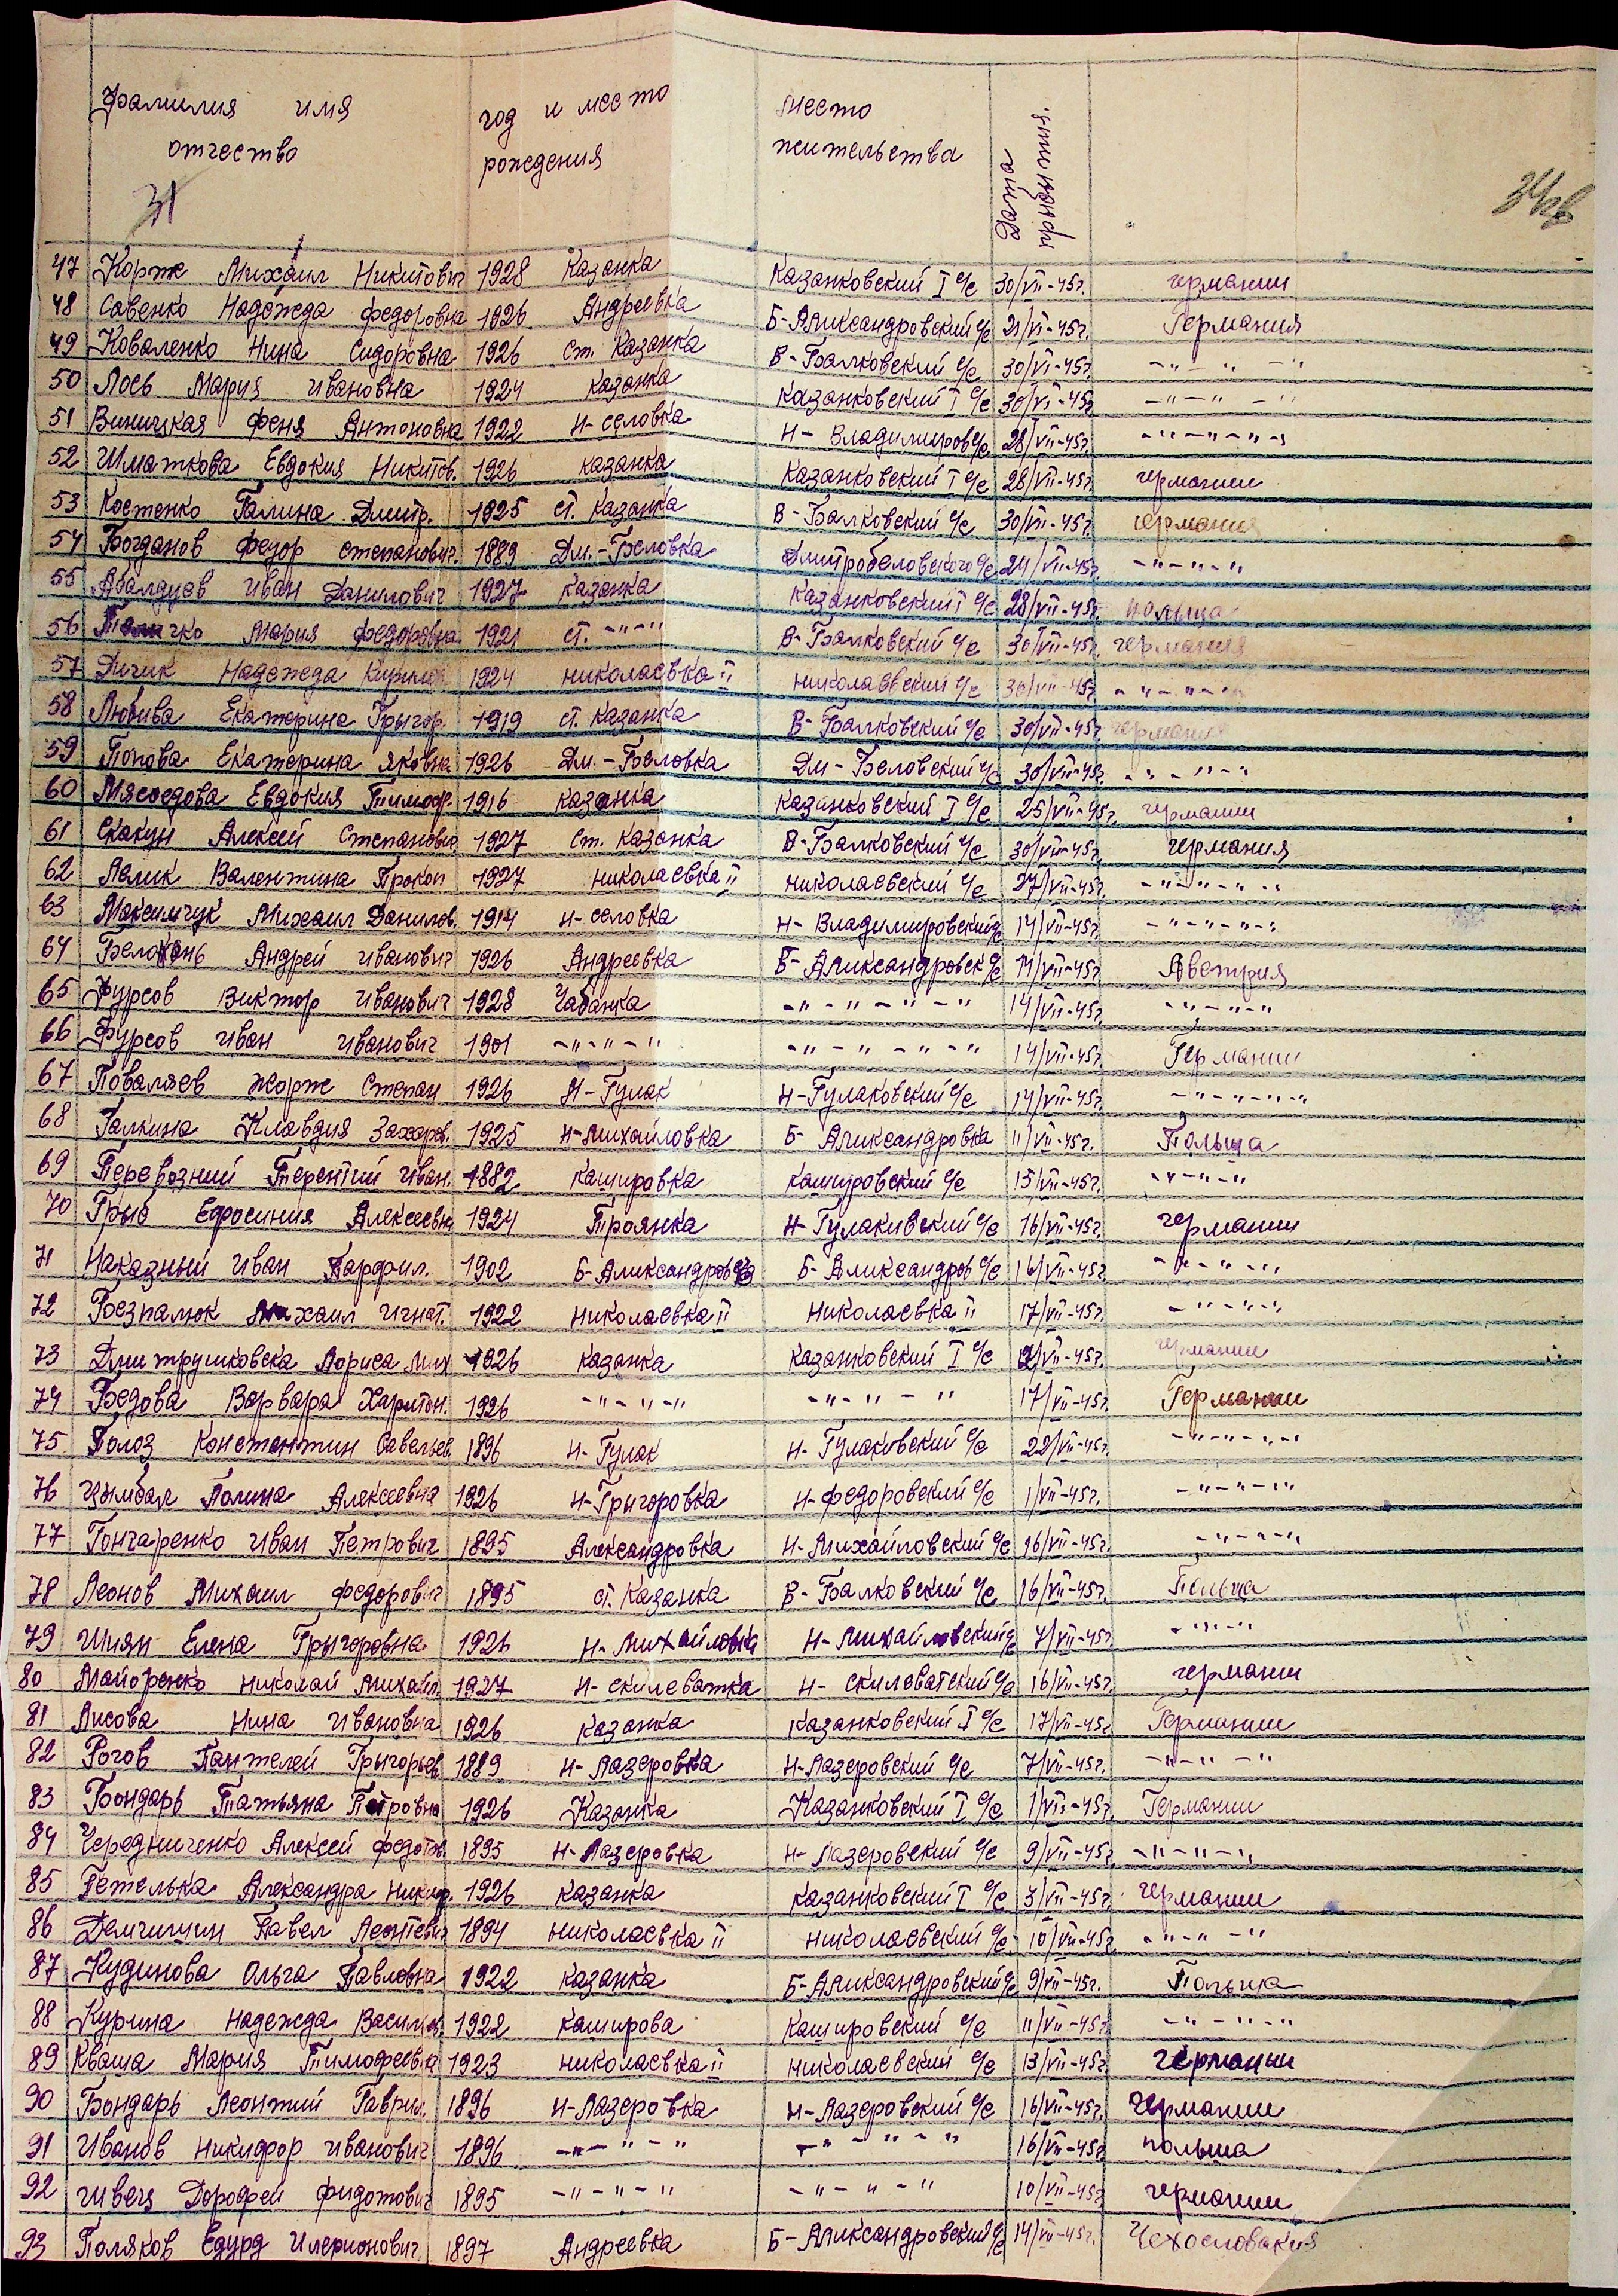 Фамилия имя отчество год и место рождения место жительства Дата прибытия
31
47 Корж Михаил Никитович 1928 Казанка Казанковский I с/с 30/VII-45г. германии
48 Савенко Надежда Федоровна 1926 Андреевка Б-Александровский с/с 21/VI-45г. Германия
49 Коваленко Нина Сидоровна 1926 ст. Казанка В-Балковский с/с 30/VI-45г. -"-"-"
50 Лось Мария Ивановна 1924 Казанка Казанковский I с/с 30/VI-45г. -"-"-"
51 Виницкая Феня Антоновна 1922 Н-Селовка Н-Владимиров с/с 28/VII-45г. -"-"-"-"
52 Шматкова Евдокия Никитов. 1926 Казанка Казанковский I с/с 28/VII-45г. германии
53 Костенко Галина Дмитр. 1925 ст. Казанка В-Балковский с/с 30/VII-45г. германия
54 Богданов Федор Степанович. 1889 Дм.-Беловка Дмитробеловского с/с 24/VII-45г. -"-"-"
55 Абалдуев Иван Данилович 1927 Казанка Казанковский I с/с 28/VII-45г. польша
56 Мария Федоровна 1921 ст. -"-" В-Балковский с/с 30/VII-45г. германия
57 Дичик Надежда Кирилов 1924 Николаевка II Николаевский с/с 30/VII-45г. -"-"-"
58 Любива Екатерина Грыгор. 1919 ст. Казанка В-Балковский с/с 30/VII-45г. германия
59 Попова Екатерина Яковна 1926 Дм.-Беловка Дм-Беловский с/с 30/VII-45г. -"-"-"
60 Мясоедова Евдокия Тимоф. 1916 Казанка Казанковский I с/с 25/VII-45г. германии
61 Скакун Алексей Степанович 1927 ст. Казанка В-Балковский с/с 30/VII-45г. германия
62 Лялик Валентина Прокоп 1927 Николаевка II Николаевский с/с 27/VII-45г. -"-"-"-"
63 Максимчук Михаил Данилов. 1914 Н-Селовка Н-Владимировский с/с 14/VII-45г. -"-"-"-"
64 Белоконь Андрей Иванович 1926 Андреевка Б-Александровск с/с 11/VII-45г. Австрия
65 Фурсов Виктор Иванович 1928 Чабанка -"-"-"-" 14/VII-45г. -"-"-"
66 Фурсов Иван Иванович 1901 -"-"-" -"-"-"-" 14/VII-45г. Германии
67 Поваляев Жорж Степан 1926 Н-Гулак Н-Гулаковский с/с 14/VII-45г. -"-"-"-"
68 Галкина Клавдия Захаров. 1925 Н-Михайловка Б-Александровка 11/VII-45г. Польша
69 Перевозний Терентий Иван. 1882 Кашировка Кашировский с/с 15/VII-45г. -"-"-"
70 Грыб Ефросиния Алексеевна 1924 Троянка Н-Гулакивский с/с 16/VII-45г. германии
71 Наказный Иван Парфил. 1902 Б-Александровка Б-Александров с/с 16/VII-45г. -"-"-"
72 Безпалюк Михаил Игнат. 1922 Николаевка II Николаевка II 17/VII-45г. -"-"-"
73 Дмитрушковска Лориса Мих 1926 Казанка Казанковский I с/с 12/VII-45г. германии
74 Бедова Варвара Харитон. 1926 -"-"-" -"-"-" 17/VII-45г. Германии
75 Полоз Константин Савельев. 1896 Н-Гулак Н-Гулаковский с/с 22/VII-45г. -"-"-"-"
76 Цымбал Полина Алексеевна 1926 Н-Грыгоровка Н-Федоровский с/с 1/VII-45г. -"-"-"
77 Гончаренко Иван Петрович 1895 Александровка Н-Михайловский с/с 16/VII-45г. -"-"-"
78 Леонов Михаил Федорович 1895 ст. Казанка В-Балковский с/с 16/VII-45г. Польша
79 Шиян Елена Грыгоровна 1926 Н-Михайловка Н-Михайловский с/с 7/VII-45г. -"-"-"
80 Майоренко Николай Михайл. 1927 Н-Скилеватка Н-Скилеватский с/с 16/VII-45г. германии
81 Лисова Нина Ивановна 1926 Казанка Казанковский I с/с 17/VII-45г. Германии
82 Рогов Пантелей Грыгорьев. 1889 Н-Лазеровка Н-Лазеровский с/с 7/VII-45г. -"-"-"
83 Бондарь Татьяна Петровна 1926 Казанка Казанковский I с/с 1/VII-45г. Германии
84 Чередниченко Алексей Федотов. 1895 Н-Лазеровка Н-Лазеровский с/с 9/VII-45г. -"-"-"
85 Петелька Александра Никиф. 1926 Казанка Казанковский I с/с 3/VII-45г. германии
86 Демчишин Павел Леонтевич 1894 Николаевка II Николаевский с/с 10/VII-45г. -"-"-"
87 Кудинова Ольга Павловна 1922 Казанка Б-Александровский с/с 9/VII-45г. Польша
88 Курина Надежда Васильев. 1922 Каширова Кашировский с/с 11/VII-45г. -"-"-"
89 Кваша Мария Тимофеевна 1923 Николаевка II Николаевский с/с 13/VII-45г. германии
90 Бондарь Леонтий Гаврил. 1896 Н-Лазеровка Н-Лазеровский с/с 16/VII-45г. германии
91 Иванов Никифор Иванович 1896 -"-"-" -"-"-"-" 16/VII-45г. польша
92 Швец Дорофей Фидотович 1895 -"-"-" -"-"-" 10/VII-45г. германии
93 Поляков Едурд Илерионович. 1897 Андреевка Б-Александровский с/с 14/VII-45г. Чехословакия